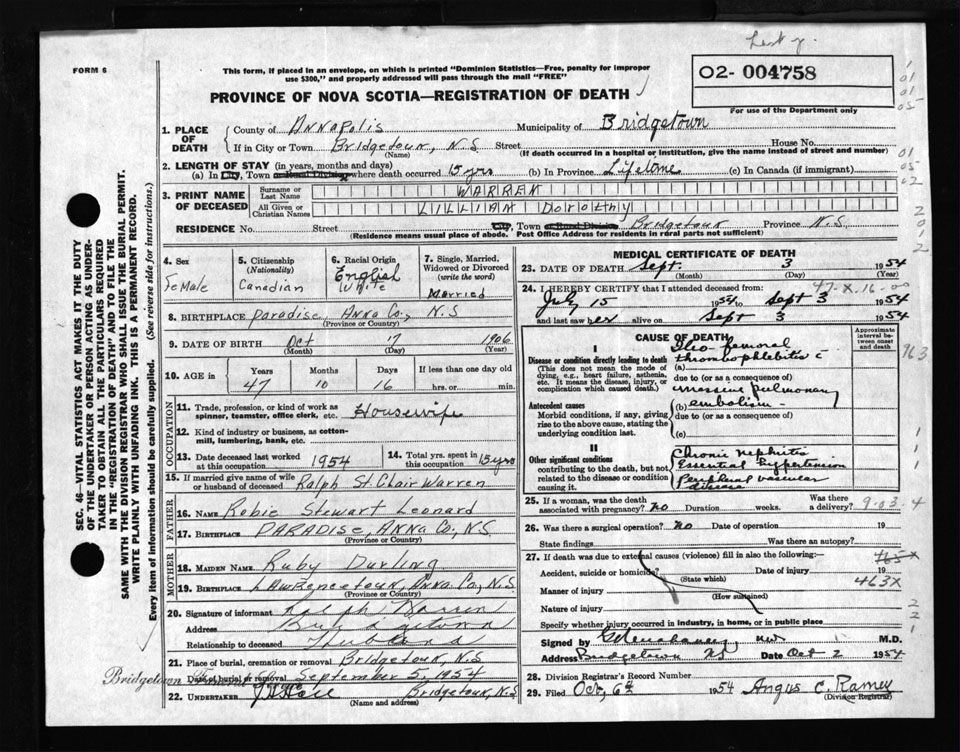 FORM 6
This form, if placed in an envelope, on which is printed "Dominion Statistics—Free, penalty for improper
use $300," and properly addressed will pass through the mail "FREE"
PROVINCE OF NOVA SCOTIA—REGISTRATION OF DEATH
O2- 004758
For use of the Department only
SEC. 46—VITAL STATISTICS ACT MAKES IT THE DUTY
OF THE UNDERTAKER OR PERSON ACTING AS UNDER-
TAKER TO OBTAIN ALL THE PARTICULARS REQUIRED
IN THE "REGISTRATION OF DEATH" AND TO FILE THE
SAME WITH THE DIVISION REGISTRAR WHO SHALL ISSUE THE BURIAL PERMIT.
WRITE PLAINLY WITH UNFADING INK. THIS IS A PERMANENT RECORD.
Every item of information should be carefully supplied. (See reverse side for instructions.)
1. PLACE OF DEATH County of Annapolis Municipality of Bridgetown
If in City or Town Bridgetown, N.S Street House No.
(Name) (If death occurred in a hospital or institution, give the name instead of street and number)
2. LENGTH OF STAY (in years, months and days)
(a) In City, Town or Rural Division where death occurred 15 yrs (b) In Province Lifetime (c) In Canada (if immigrant)
3. PRINT NAME OF DECEASED Surname or Last Name WARREN
All Given or Christian Names LILLIAN Dorothy
RESIDENCE No. Street City, Town or Rural Division Bridgetown Province N.S.
(Residence means usual place of abode. Post Office Address for residents in rural parts not sufficient)
4. Sex Female
5. Citizenship (Nationality) Canadian
6. Racial Origin English White
7. Single, Married, Widowed or Divorced (write the word) Married
8. BIRTHPLACE Paradise, Anna Co., N.S
(Province or Country)
9. DATE OF BIRTH Oct 17 1906
(Month) (Day) (Year)
10. AGE in Years 47 Months 10 Days 16 If less than one day old hrs. or min.
OCCUPATION
11. Trade, profession, or kind of work as spinner, teamster, office clerk, etc. Housewife
12. Kind of industry or business, as cotton-mill, lumbering, bank, etc.
13. Date deceased last worked at this occupation 1954 14. Total yrs. spent in this occupation 15 yrs
15. If married give name of wife or husband of deceased Ralph St. Clair Warren
FATHER
16. Name Robie Stewart Leonard
17. BIRTHPLACE PARADISE, ANNA Co, N.S
(Province or Country)
MOTHER
18. MAIDEN NAME Ruby Durling
19. BIRTHPLACE LAWRENCETOWN, ANNA. Co, N.S.
(Province or Country)
20. Signature of informant Ralph Warren
Address Bridgetown
Relationship to deceased Husband
21. Place of burial, cremation or removal Bridgetown, N.S
Date of burial or removal September 5, 1954
Bridgetown
22. UNDERTAKER Bridgetown, N.S
(Name and address)
MEDICAL CERTIFICATE OF DEATH
23. DATE OF DEATH Sept. 3 1954
(Month) (Day) (Year)
24. I HEREBY CERTIFY that I attended deceased from: 47-X-16-00
July 15 1954 to Sept 3 1954
and last saw her alive on Sept 3 1954
CAUSE OF DEATH
Approximate interval between onset and death
I
Disease or condition directly leading to death
(This does not mean the mode of dying, e.g., heart failure, asthenia, etc. It means the disease, injury, or complication which caused death.)
Ileo-femoral
(a) thrombophlebitis c
due to (or as a consequence of)
massive pulmonary
Antecedent causes
Morbid conditions, if any, giving rise to the above cause, stating the underlying condition last.
(b) embolism
due to (or as a consequence of)
(c)
963
II
Other significant conditions
contributing to the death, but not related to the disease or condition causing it.
Chronic nephritis
Essential hypertension
Peripheral vascular
disease
25. If a woman, was the death associated with pregnancy? No Duration weeks. Was there a delivery? 9-03 4
26. Was there a surgical operation? No Date of operation 19
State findings Was there an autopsy?
27. If death was due to external causes (violence) fill in also the following:
Accident, suicide or homicide? Date of injury 19
(State which) 463X
Manner of injury
(How sustained)
Nature of injury
Specify whether injury occurred in industry, in home, or in public place
Signed by M.D.
Address Bridgetown NS Date Oct 2 1954
28. Division Registrar's Record Number
29. Filed Oct. 6th 1954 Angus C. Ramey
(Division Registrar)